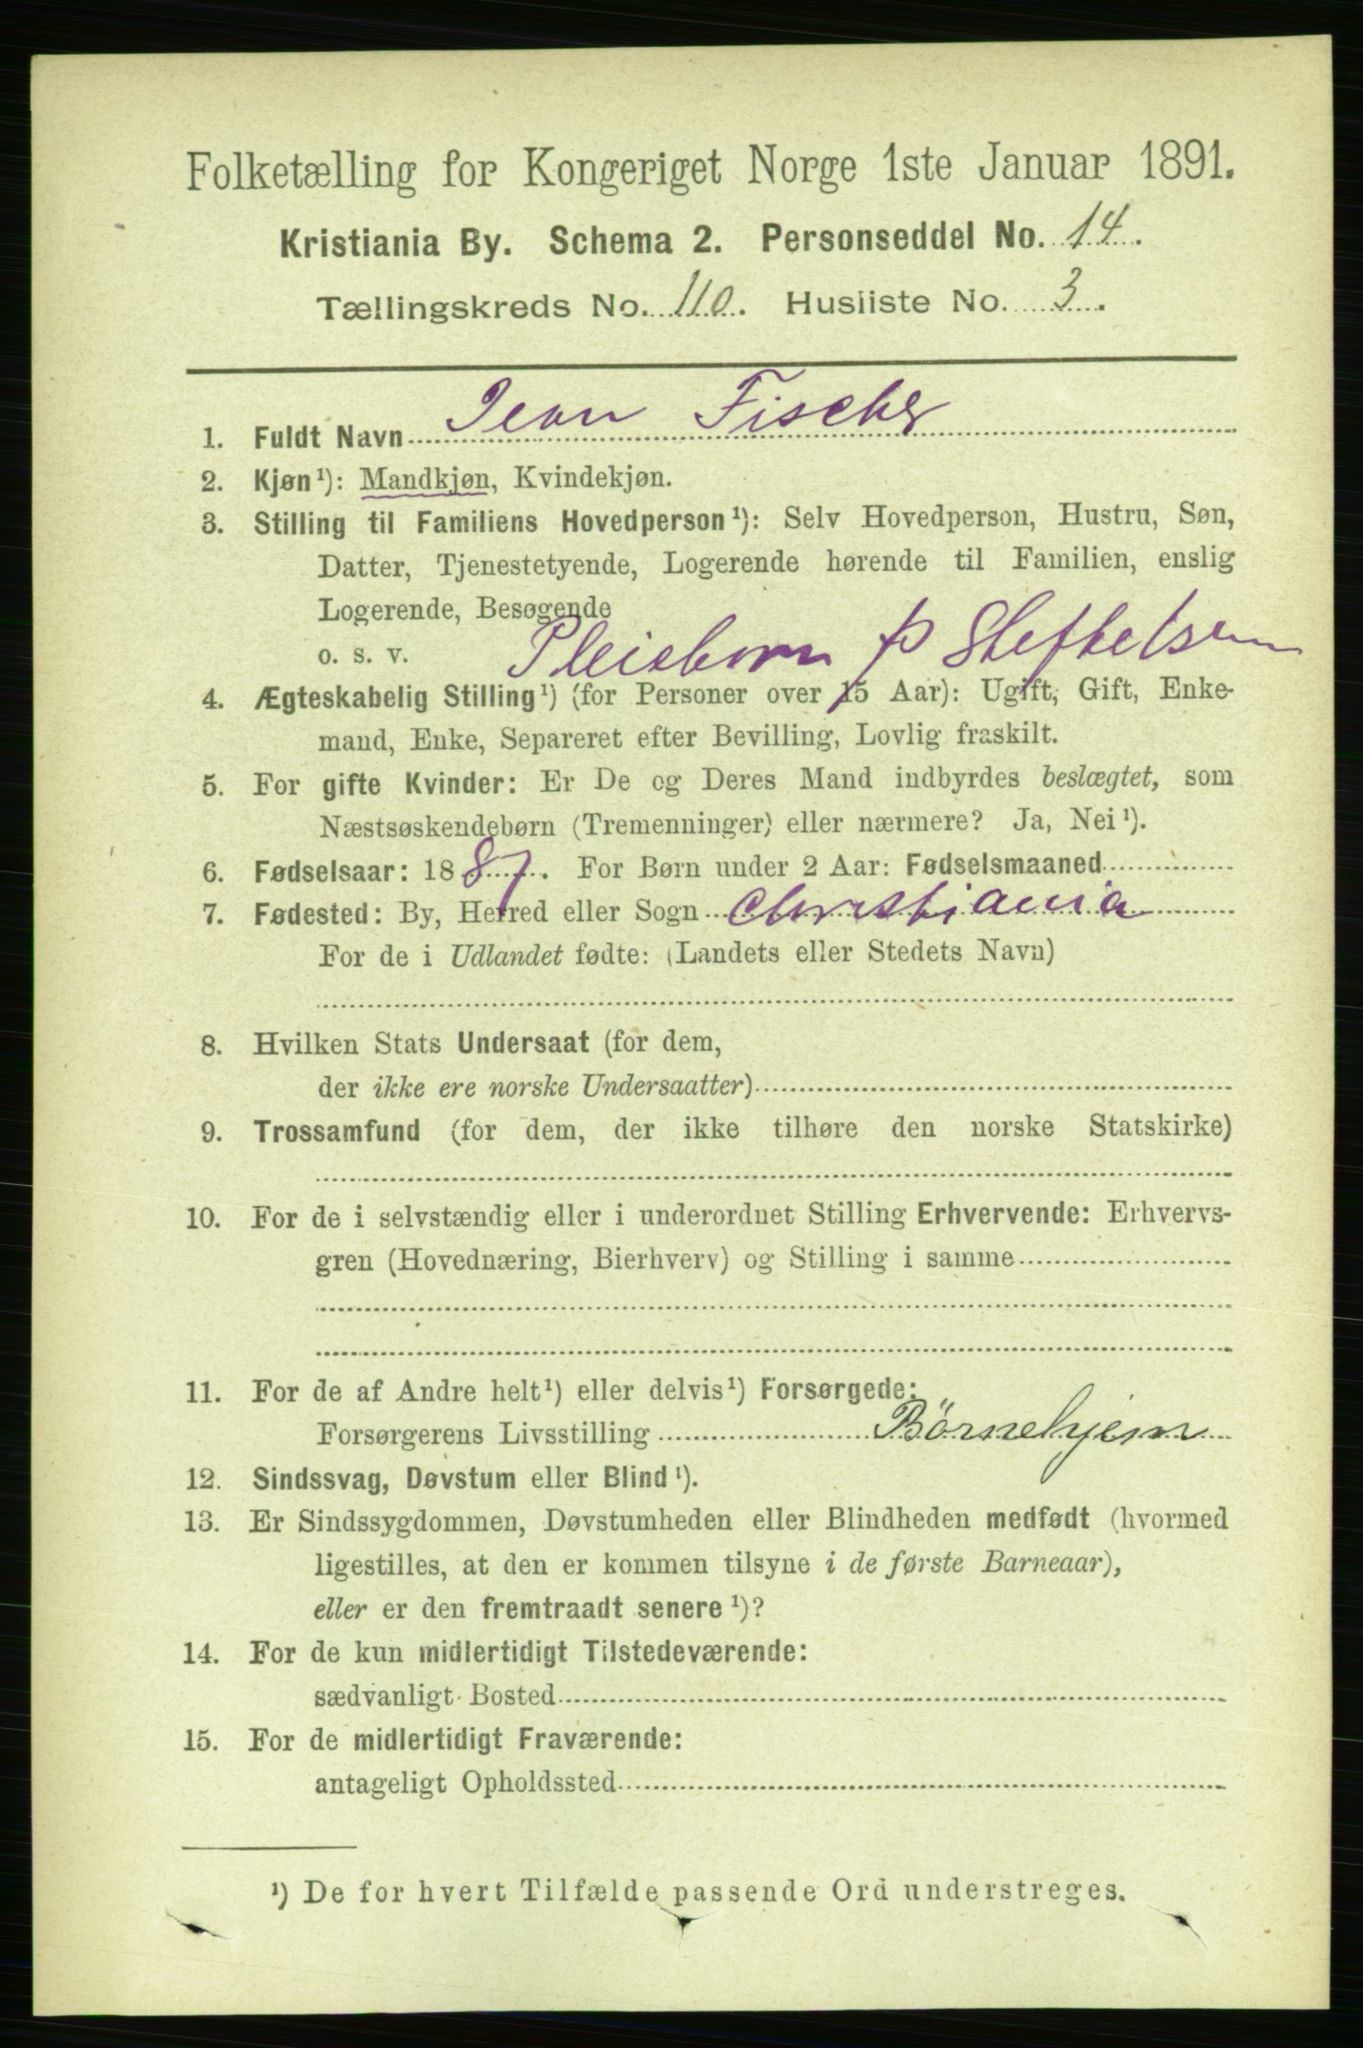 Folketælling for Kongeriget Norge 1ste Januar 1891.
Kristiania By. Schema 2. Personseddel No. 14.
Tællingskreds No. 110. Husliste No. 3.
1. Fuldt Navn Jean Fischer
2. Kjøn¹): Mandkjøn, Kvindekjøn.
3. Stilling til Familiens Hovedperson¹): Selv Hovedperson, Hustru, Søn,
Datter, Tjenestetyende, Logerende hørende til Familien, enslig
Logerende, Besøgende
o. s. v. Pleiebørn
4. Ægteskabelig Stilling¹) (for Personer over 15 Aar): Ugift, Gift, Enke-
mand, Enke, Separeret efter Bevilling, Lovlig fraskilt.
5. For gifte Kvinder: Er De og Deres Mand indbyrdes beslægtet, som
Næstsøskendebørn (Tremenninger) eller nærmere? Ja, Nei¹).
6. Fødselsaar: 1887. For Børn under 2 Aar: Fødselsmaaned
7. Fødested: By, Herred eller Sogn Christiania
For de i Udlandet fødte: (Landets eller Stedets Navn)
8. Hvilken Stats Undersaat (for dem,
der ikke ere norske Undersaatter)
9. Trossamfund (for dem, der ikke tilhøre den norske Statskirke)
10. For de i selvstændig eller i underordnet Stilling Erhvervende: Erhvervs-
gren (Hovednæring, Bierhverv) og Stilling i samme
11. For de af Andre helt¹) eller delvis¹) Forsørgede:
Forsørgerens Livsstilling Børnehjem
12. Sindssvag, Døvstum eller Blind¹).
13. Er Sindssygdommen, Døvstumheden eller Blindheden medfødt (hvormed
ligestilles, at den er kommen tilsyne i de første Barneaar),
eller er den fremtraadt senere¹)?
14. For de kun midlertidigt Tilstedeværende:
sædvanligt Bosted
15. For de midlertidigt Fraværende:
antageligt Opholdssted
¹) De for hvert Tilfælde passende Ord understreges.